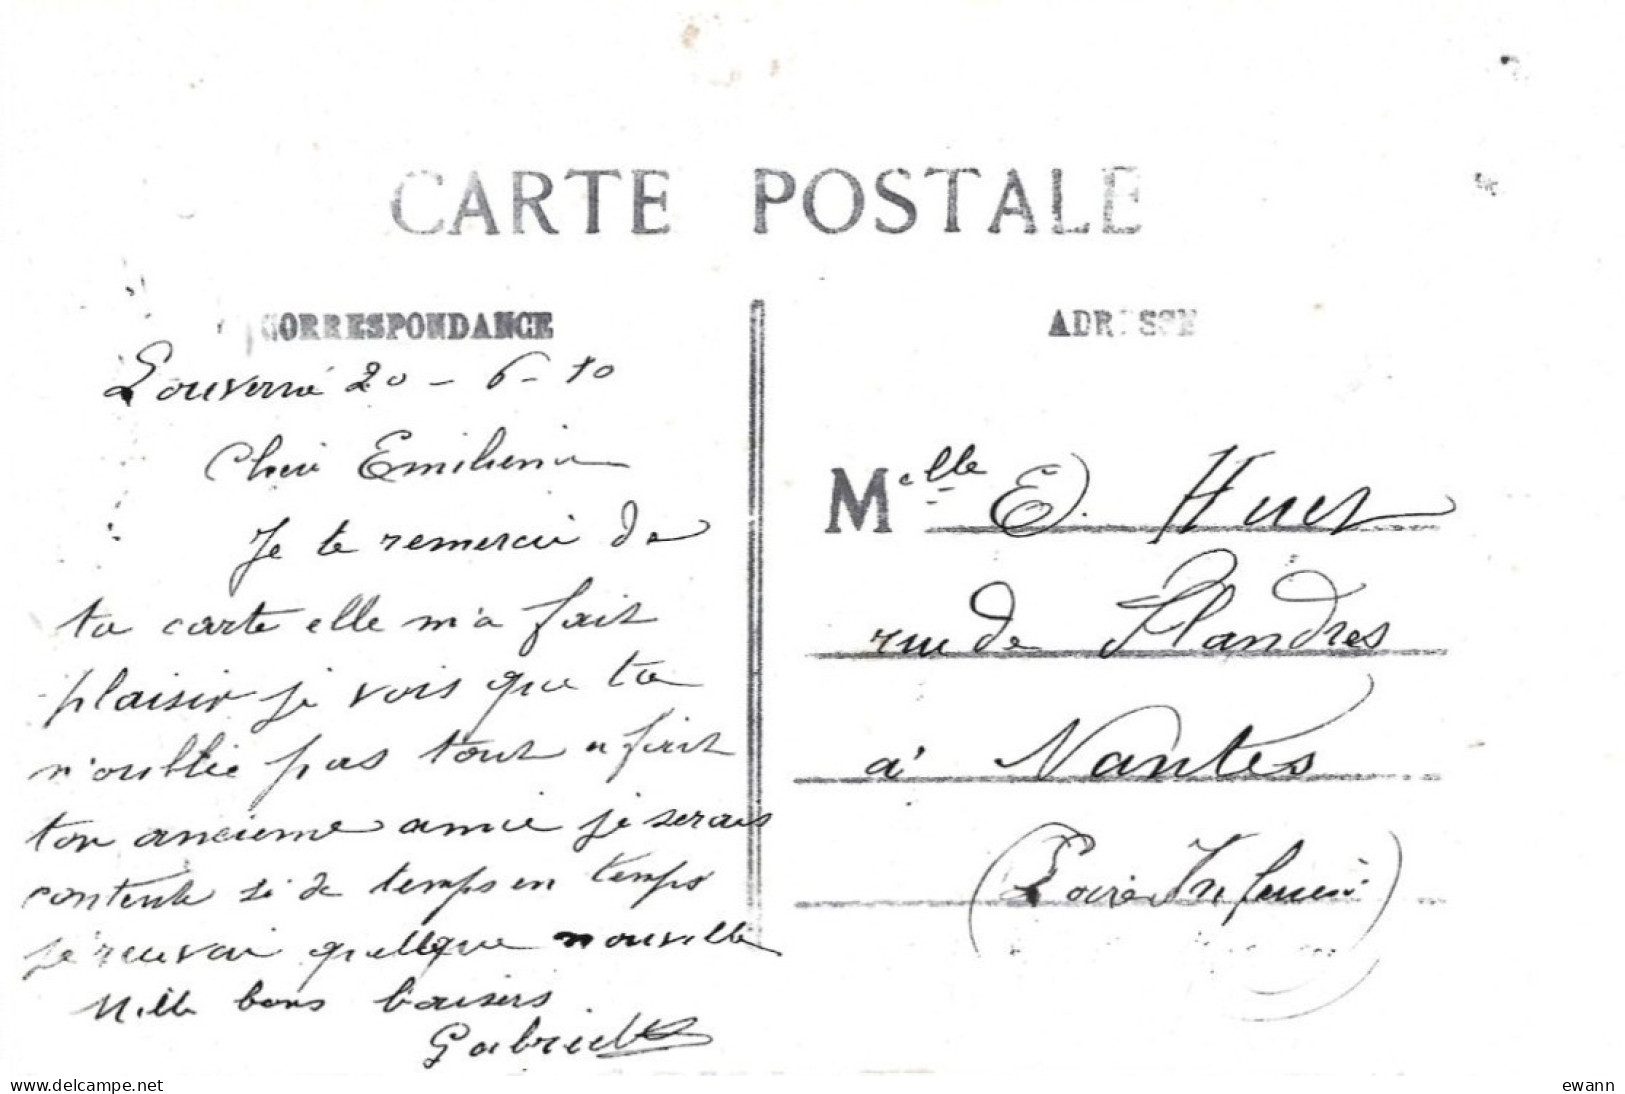 CARTE POSTALE
CORRESPONDANCE
Louverné 20 - 6 - 10
Chère Emilienne
Je te remercie de
ta carte elle m'a fait
plaisir je vois que tu
n'oublie pas tout a fait
ton ancienne amie je serais
contente si de temps en temps
je recevai quelque nouvelle
Mille bons baisers
Gabrielle
ADRESSE
Melle E. Huet
rue de Flandres
à Nantes
(Loire Inférieure)
delcampe.net
ewann